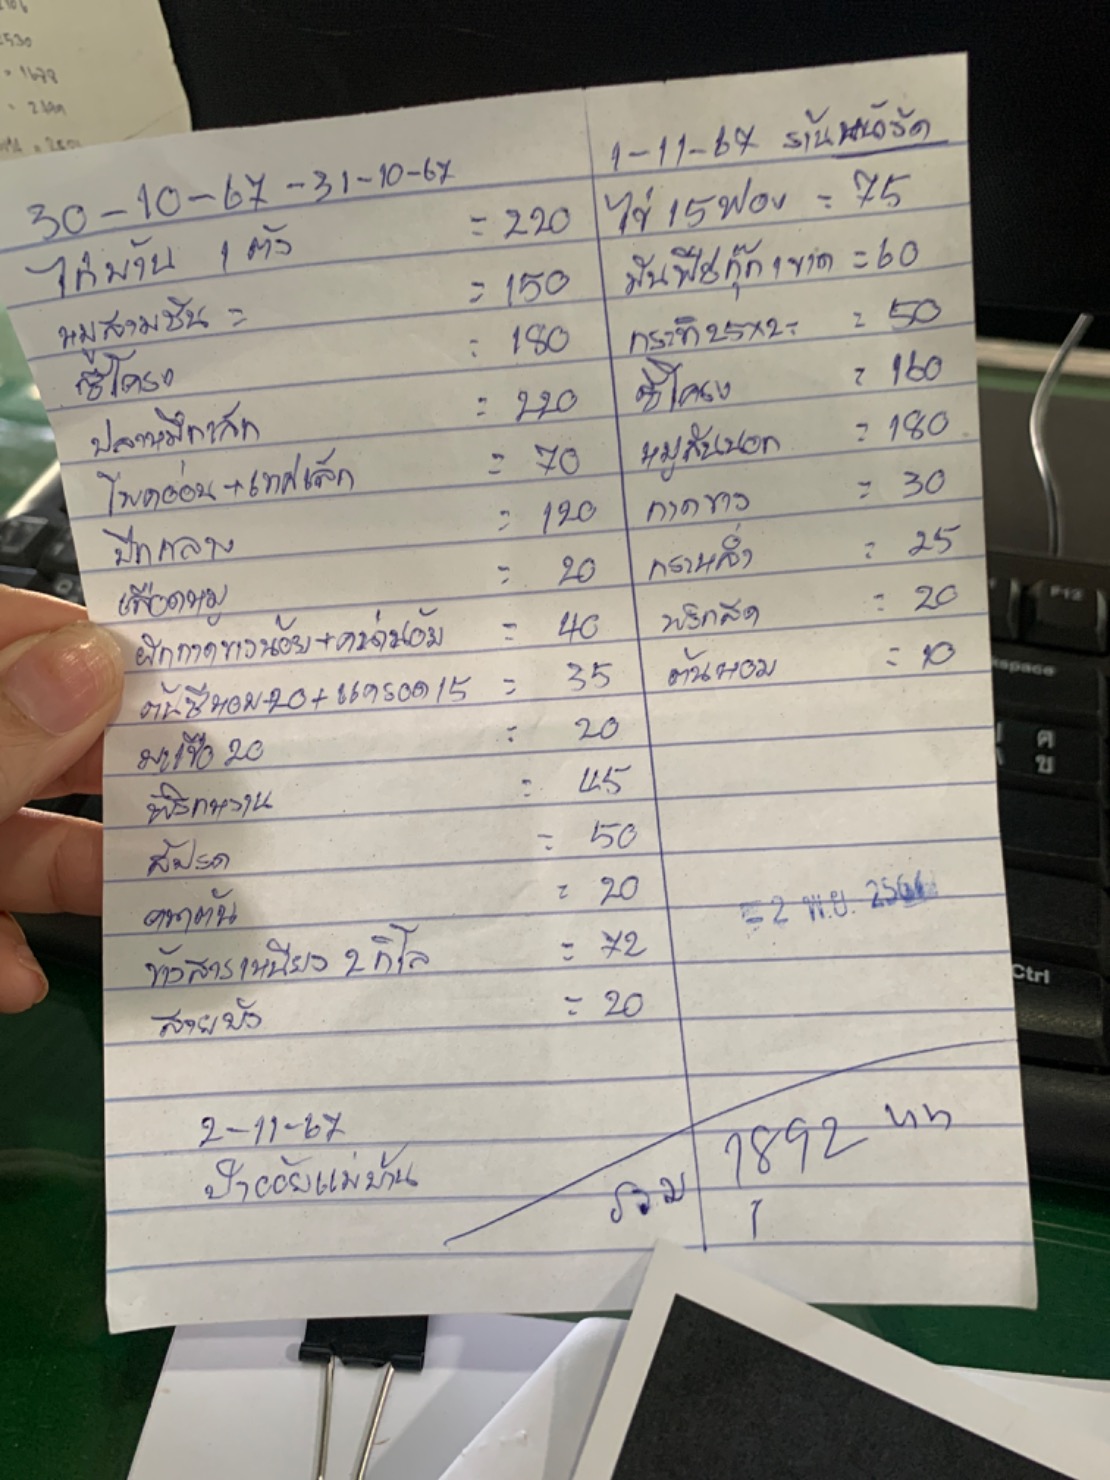 2530
= 1678
30-10-67 -31-10-67
ไก่บ้าน 1 ตัว = 220
หมูสามชั้น = = 150
ซี่โครง = 180
ปลาหมึกสด = 220
โพดอ่อน+เทศเล็ก = 70
ปีกกลาง = 120
เลือดหมู = 20
ผักกาดขาวน้อย+คน้าน้อย = 40
ต้นชีหอม20+แครอด15 = 35
มะเขือ 20 = 20
พริกหวาน = 45
สัปรด = 50
= 20
ข้าวสารเหนียว 2 กิโล = 72
สายบัว = 20
2-11-67
ป้าออยแม่บ้าน
1-11-67 ร้าน
ไข่ 15 ฟอง = 75
มันฟิชกุ๊ก 1 ขวด = 60
กระทิ 25x2= = 50
ซี่โครง = 160
หมูสันนอก = 180
กาดขาว = 30
กระหล่ำ = 25
พริกสด = 20
ต้นหอม = 10
=2 พ.ย. 256
รวม 1892 บาท
Ctrl
F12